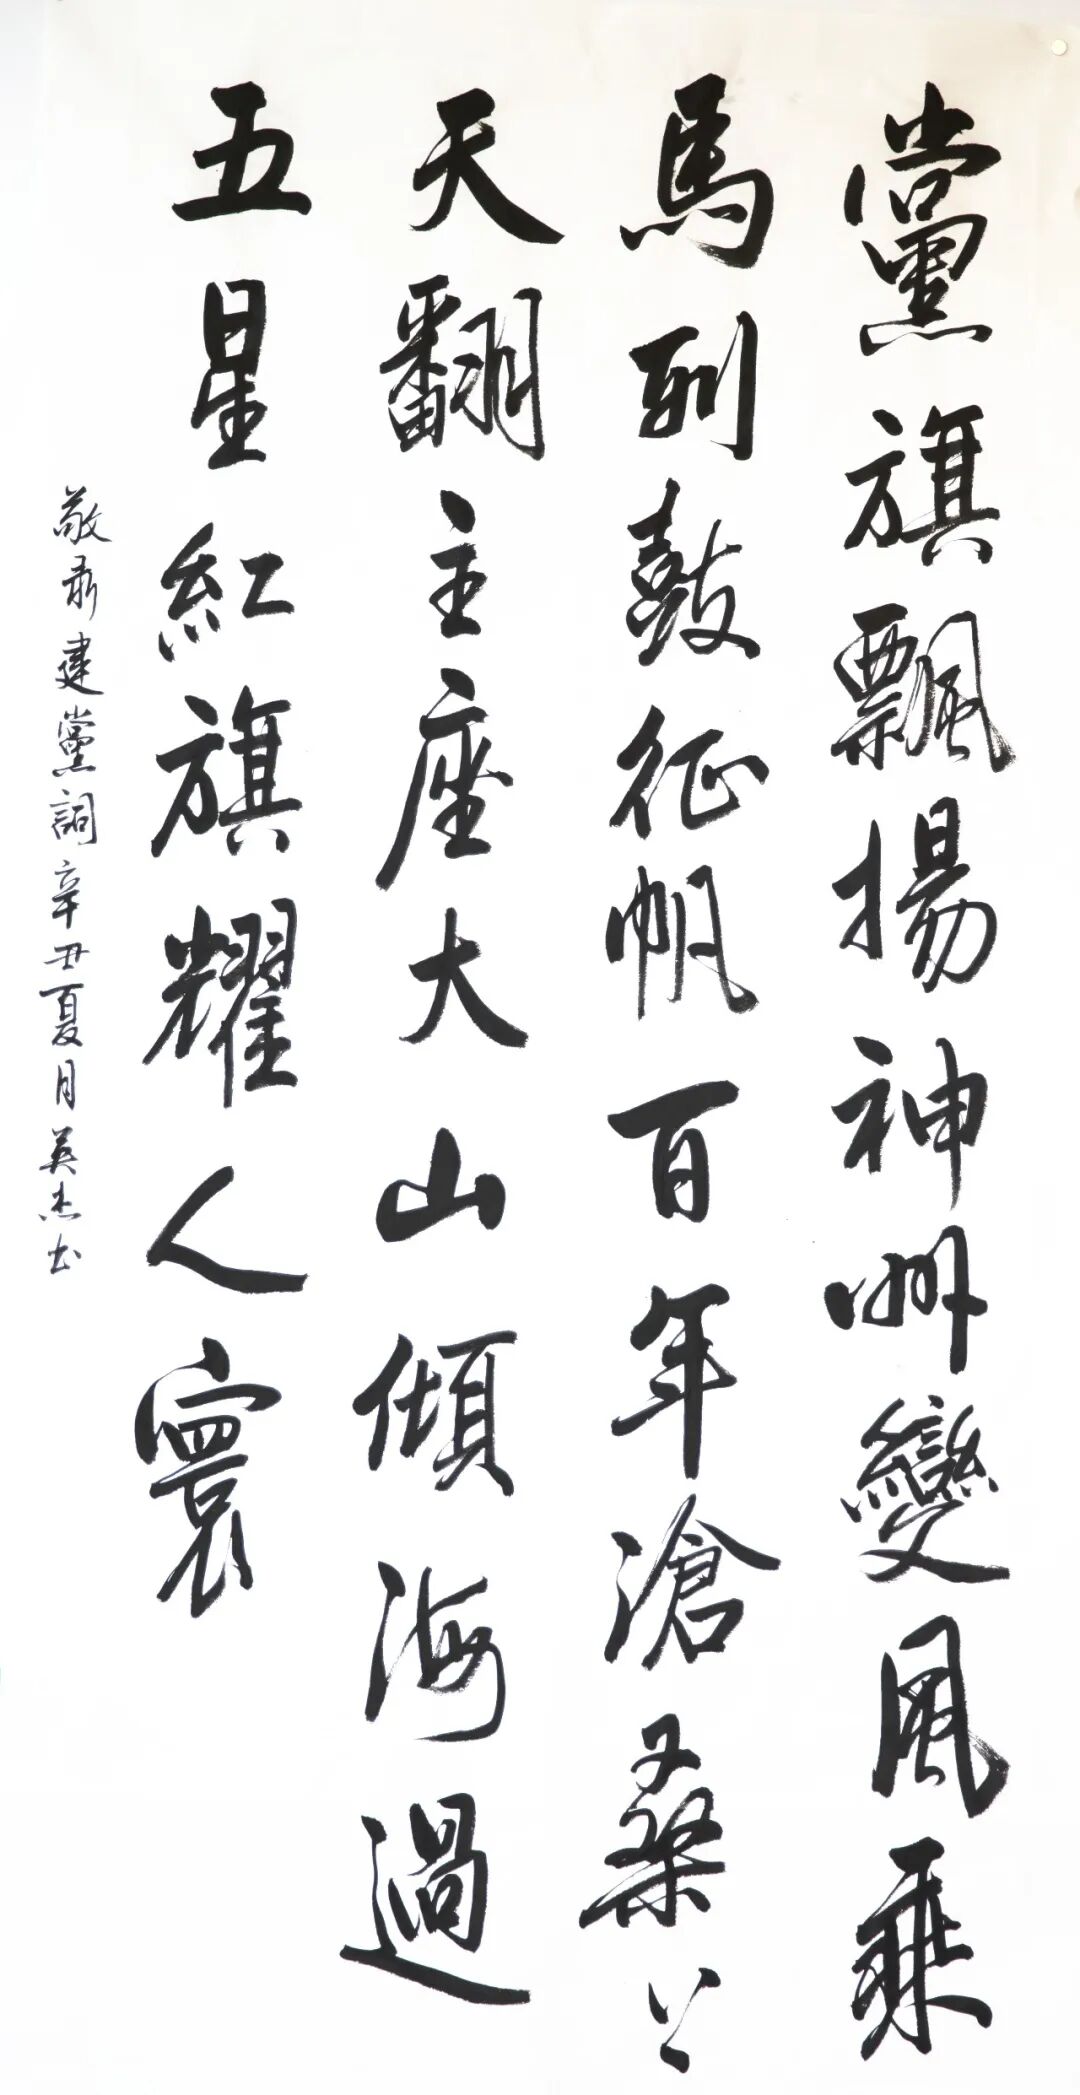 黨旗飄揚神州變風乘
馬列鼓征帆百年滄桑
天翻主座大山傾海過
五星紅旗耀人寰
敬建黨詞辛丑夏月英杰书